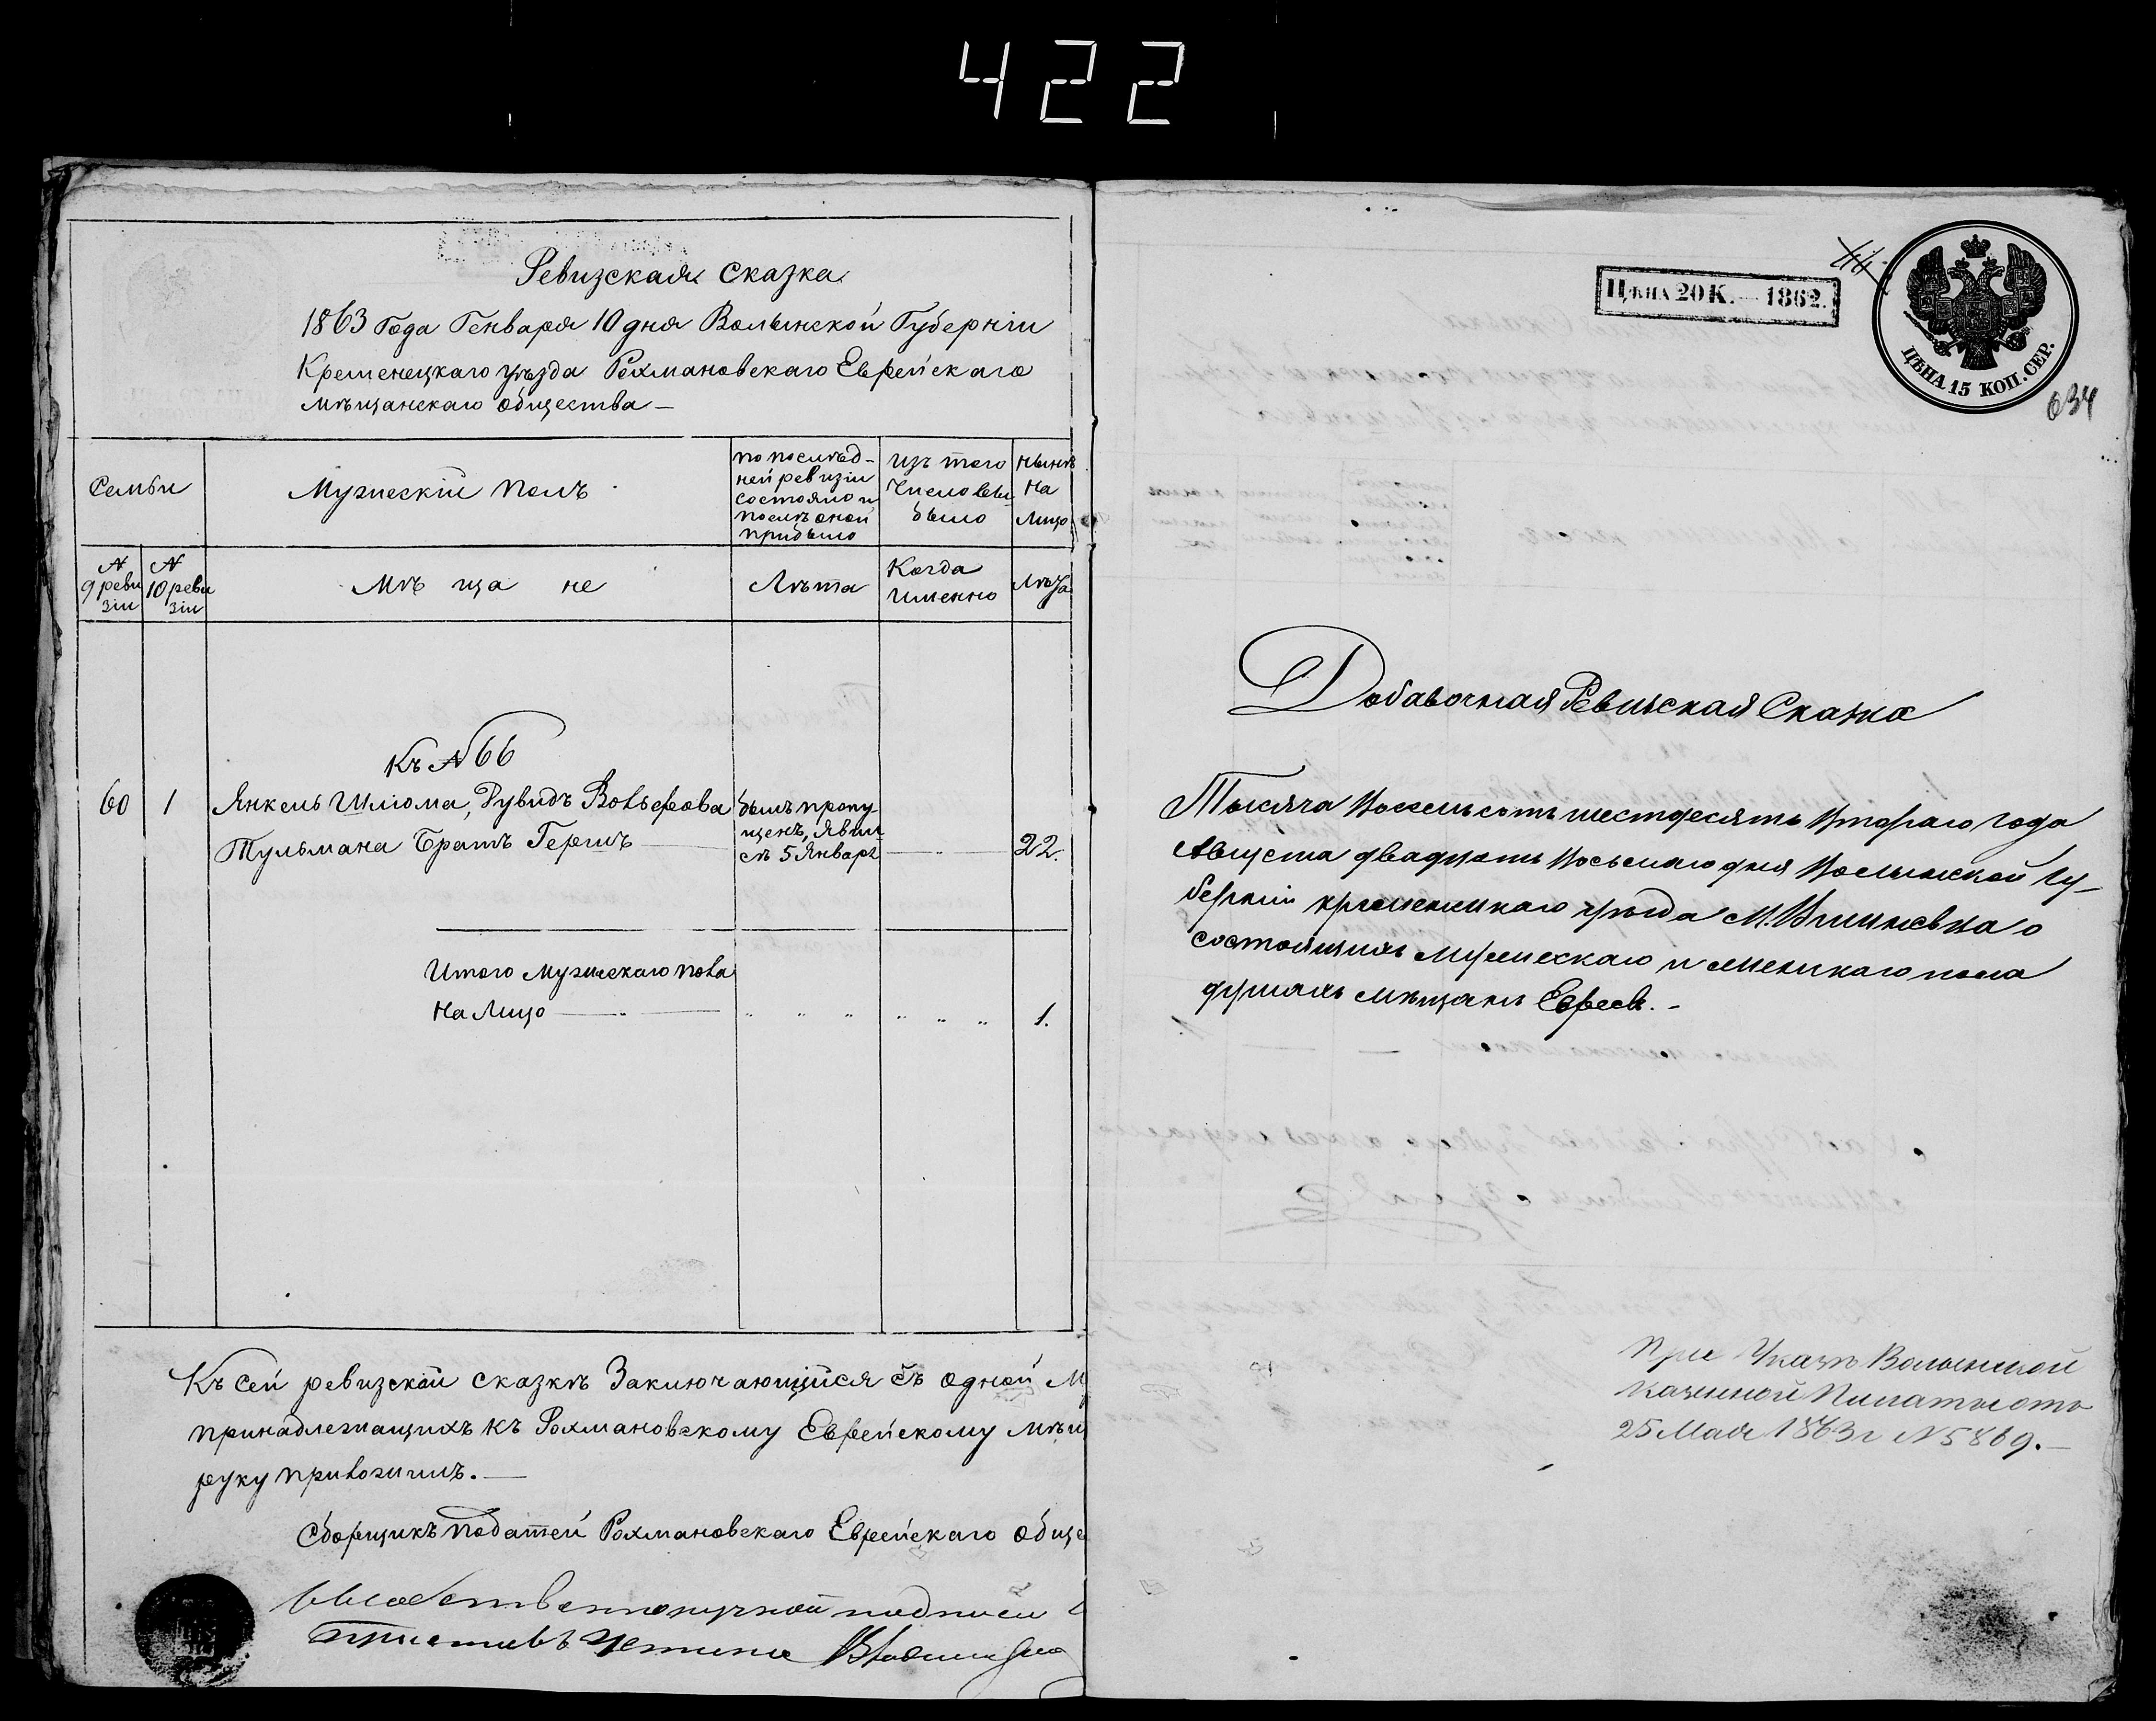 422
Ревизская сказка
1863 Года Генваря 10 дня Волынской Губерніи
Кременецкаго уѣзда Рохмановскаго Еврейскаго
мѣщанскаго общества —
Семьи
Мужескій полъ
по послѣд-
ней ревизіи
состояло и
послѣ оной
прибыло
изъ того
числа вы
было
нынѣ
на
лицо
№
9 реви
зіи
№
10 реви
зіи
Мѣ ща не
Лѣта
Когда
именно
Лѣта
Къ № 66
60 1 Янкель Шліома, Рувидъ Вольфова
Тульмана Братъ Гершъ
былъ пропу
щенъ, явил
съ 5 Январ
22.
Итого Мужескаго пола
на Лицо 1.
Къ сей ревизской сказкѣ Заключающійся въ одной М
принадлежащихъ къ Рохмановскому Еврейскому Мѣщ
руку приложилъ. —
Сборщикъ податей Рохмановскаго Еврейскаго обще
подписи
44
Цѣна 20 К. — 1862.
ЦѢНА 15 КОП. СЕР.
634
Добавочная Ревизская Сказка
Тысяча восемьсотъ шестдесятъ втораго года
Августа двадцать восьмаго дня Волынской Гу-
берніи кременецкаго уѣзда М. Вишневца о
состоящихъ мужескаго и женскаго пола
душахъ мѣщанъ Евреевъ. -
При Указѣ Волынской
Казенной Палаты отъ
25 Мая 1863 г № 5869. —